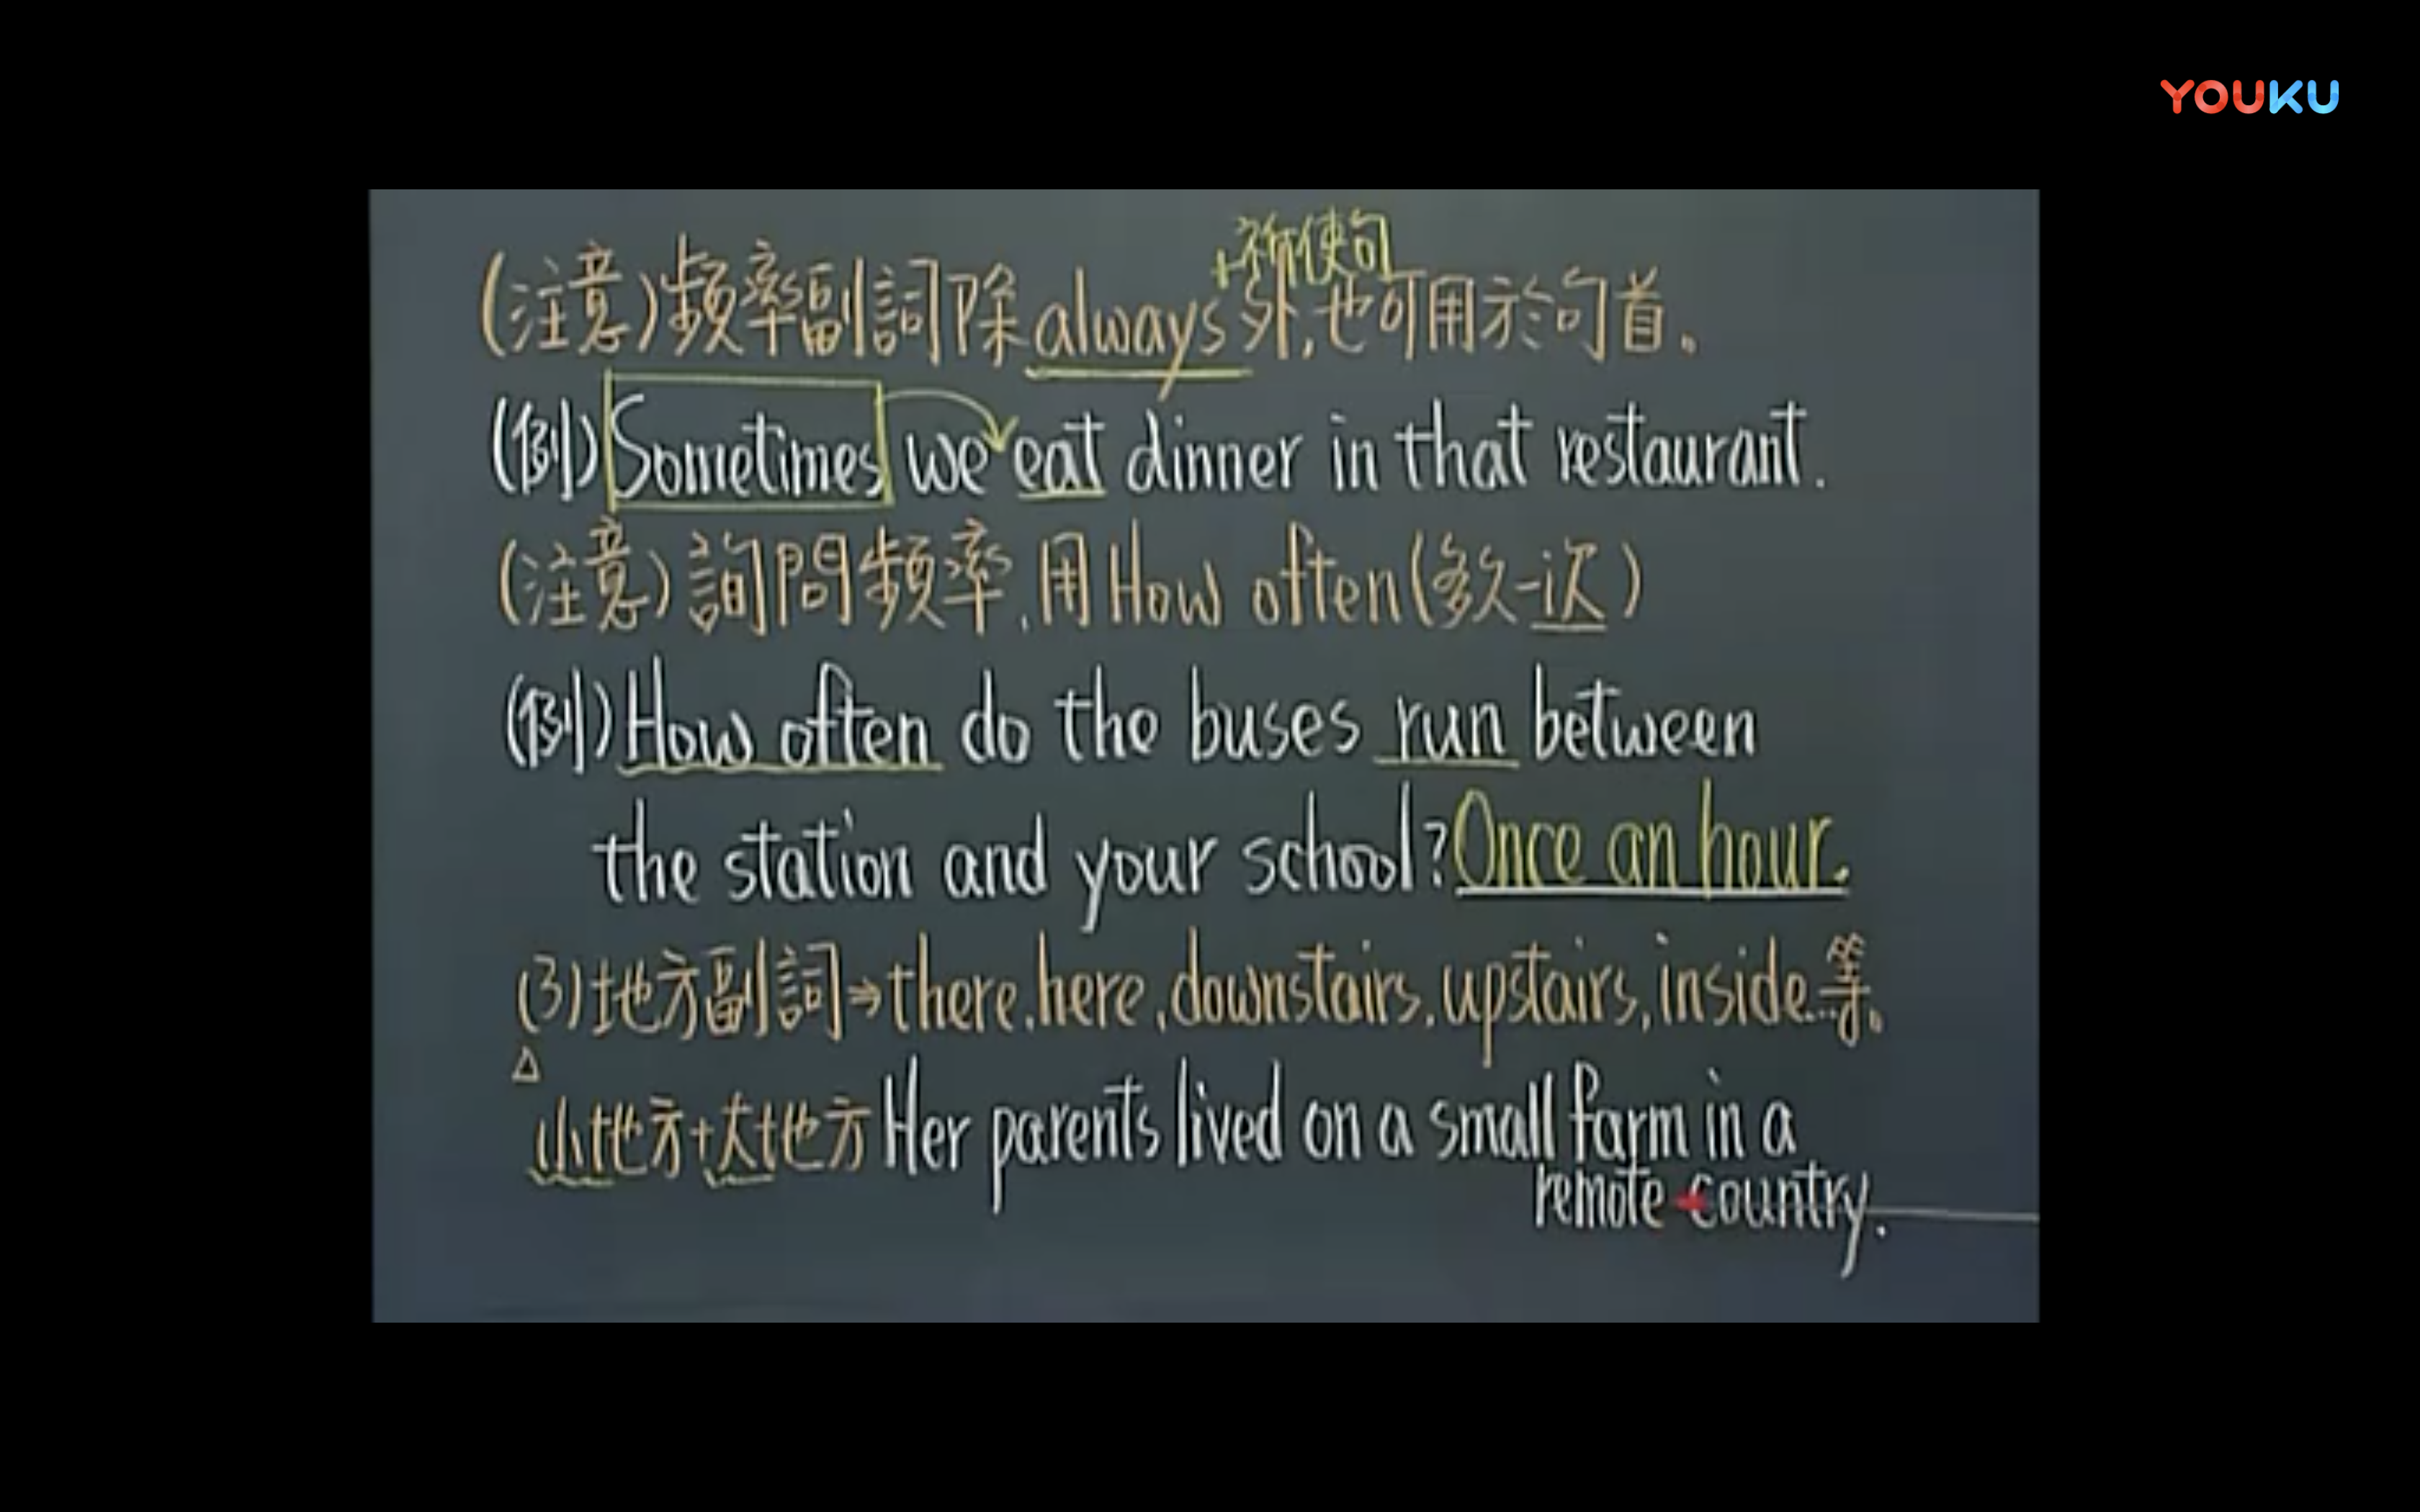 YOUKU
+祈使句
(注意)頻率副詞除always外,也可用於句首。
(例)Sometimes we eat dinner in that restaurant.
(注意)詢問頻率,用How often(多久一次)
(例)How often do the buses run between
the station and your school?Once an hour.
(3)地方副詞⇒there,here,downstairs,upstairs,inside...等。
△
小地方+大地方Her parents lived on a small farm in a
remote country.